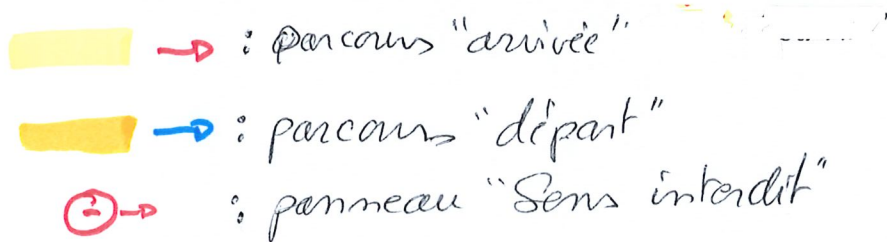 : parcours "arrivée"
: parcours "départ"
: panneau "Sens interdit"